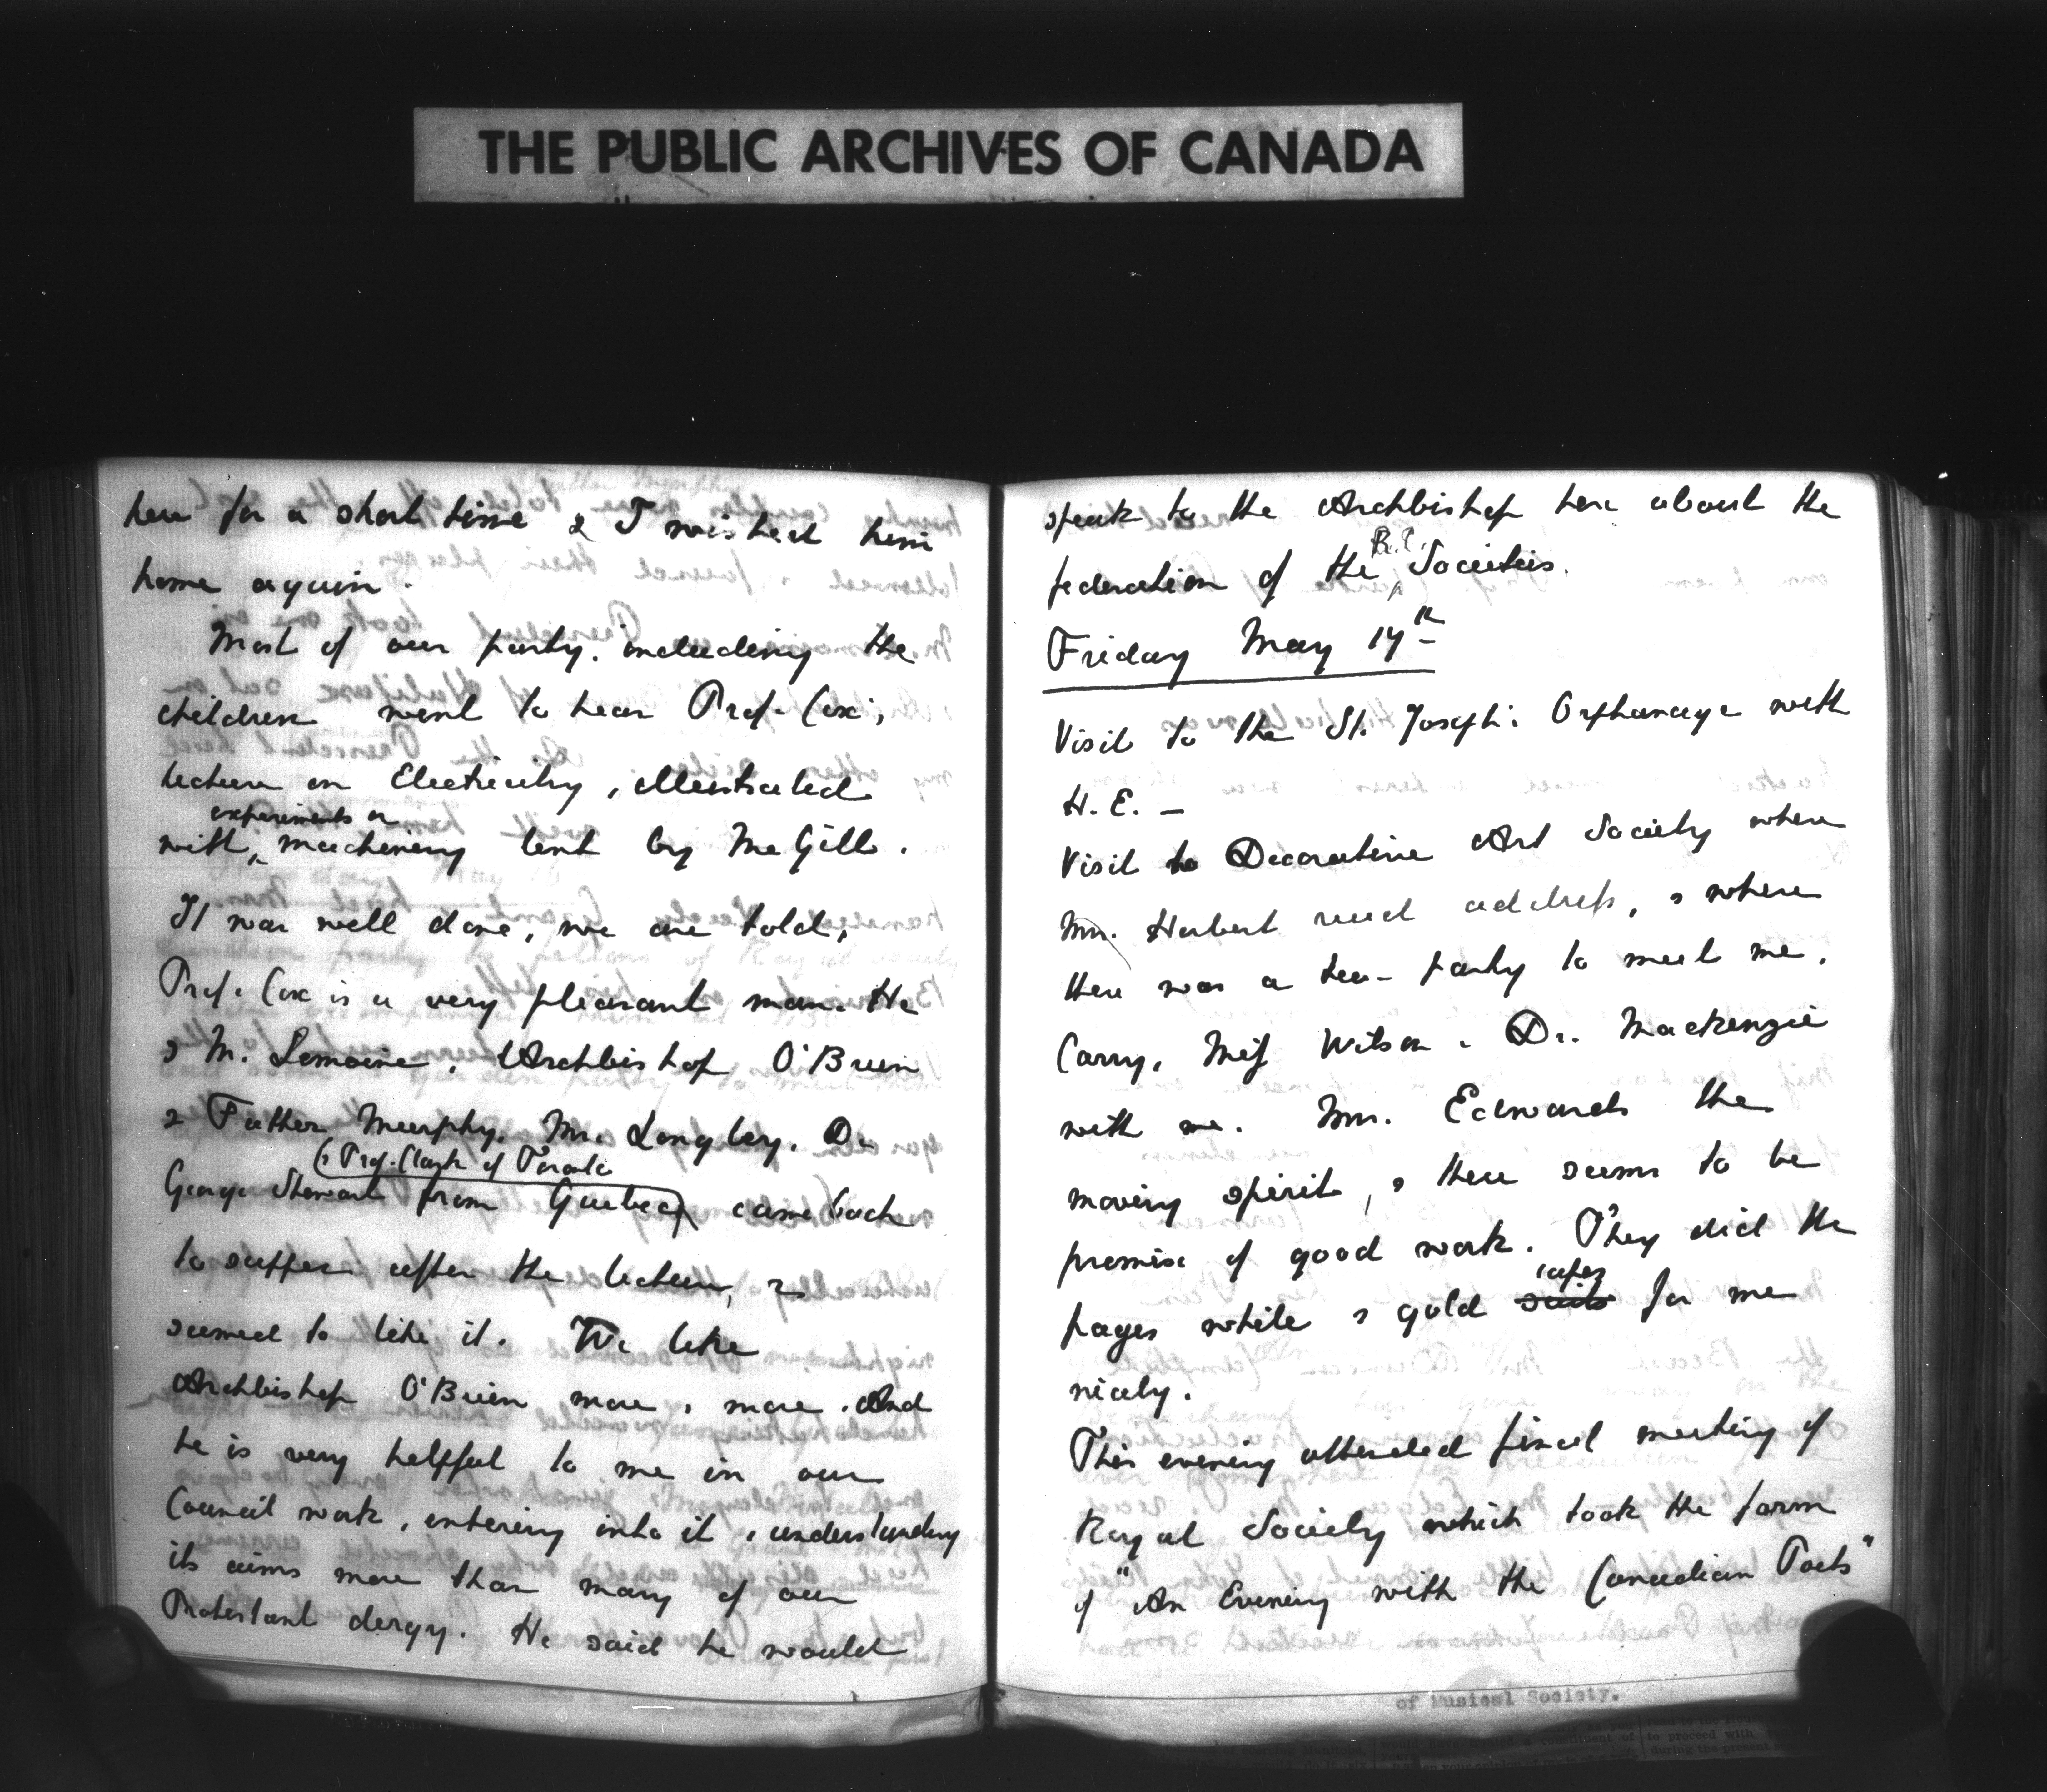 THE PUBLIC ARCHIVES OF CANADA
here for a short time & I wished him
home again.
Most of our party, including the
children went to hear Prof. Cox's
lecture on Electricity, illustrated
experiments on
with machinery lent by McGill.
It was well done, we are told,
Prof. Cox is a very pleasant man. He
& M. Lemoine, Archbishop O'Brien
& Father Murphy, Mr. Longley, Dr.
(& Prof. Clark of Toronto
George Stewart from Quebec) came back
to supper after the lecture, &
seemed to like it. We like
Archbishop O'Brien more & more. And
he is very helpful to me in our
Council work, entering into it & understanding
its aims more than many of our
Protestant clergy. He said he would
speak to the Archbishop here about the
R.C.
federation of the Societies.
Friday May 17th
Visit to the St. Joseph's Orphanage with
H.E. —
Visit to Decorative Art Society where
Mrs. Herbert read address, & where
there was a tea-party to meet me.
Carry, Miss Wilson & Dr. Mackenzie
with me. Mrs. Edwards the
moving spirit, & there seems to be
promise of good work. They did the
capes
pages white & gold suits for me
nicely.
This evening attended final meeting of
Royal Society which took the form
of "An Evening with the Canadian Poets"
of Musical Society.